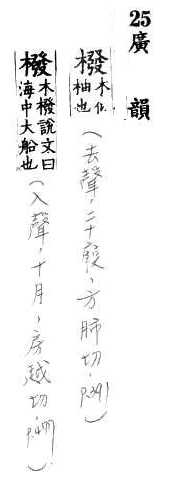 25廣韻
橃木似
柚也
(去聲,二十廢,方肺切,P.391)
橃木橃說文曰
海中大船也
(入聲,十月,房越切,